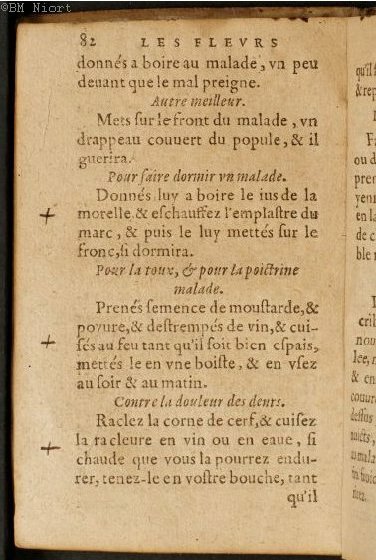 ©BM Niort
82 LES FLEVRS
donnés a boire au malade, vn peu
deuant que le mal preigne.
Autre meilleur.
Mets ſur le front du malade, vn
drappeau couuert du popule, & il
guerira.
Pour faire dormir vn malade.
Donnés luy a boire le ius de la
morelle & eſchauffez l'emplaſtre du
marc, & puis le luy mettés ſur le
fronc, ſi dormira.
Pour la toux, & pour la poictrine
malade.
Prenés ſemence de mouſtarde, &
poyure, & deſtrempés de vin, & cui-
ſés au feu tant qu'il ſoit bien eſpais,
mettés le en vne boiſte, & en vſez
au ſoir & au matin.
Contre la douleur des dents.
Raclez la corne de cerf, & cuiſez
la racleure en vin ou en eaue, ſi
chaude que vous la pourrez endu-
rer, tenez-le en voſtre bouche, tant
qu'il